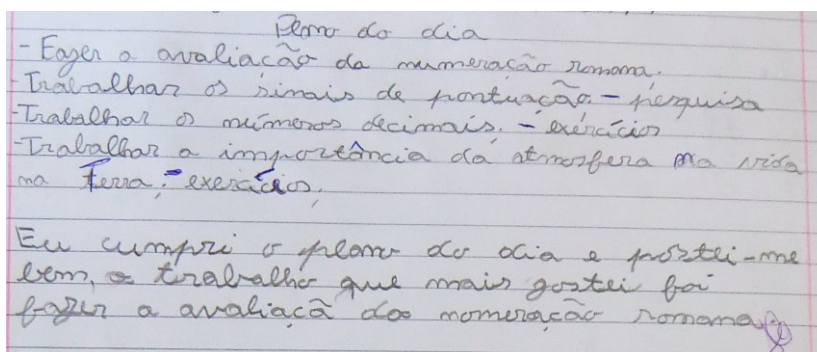 Plano do dia
- Fazer a avaliação da numeração romana.
- Trabalhar os sinais de pontuação. - pesquisa
- Trabalhar os números decimais. - exercícios
- Trabalhar a importância da atmosfera na vida
na terra. - exercícios.
Eu cumpri o plano do dia e portei-me
bem, o trabalho que mais gostei foi
fazer a avaliaçã da nomeração romana